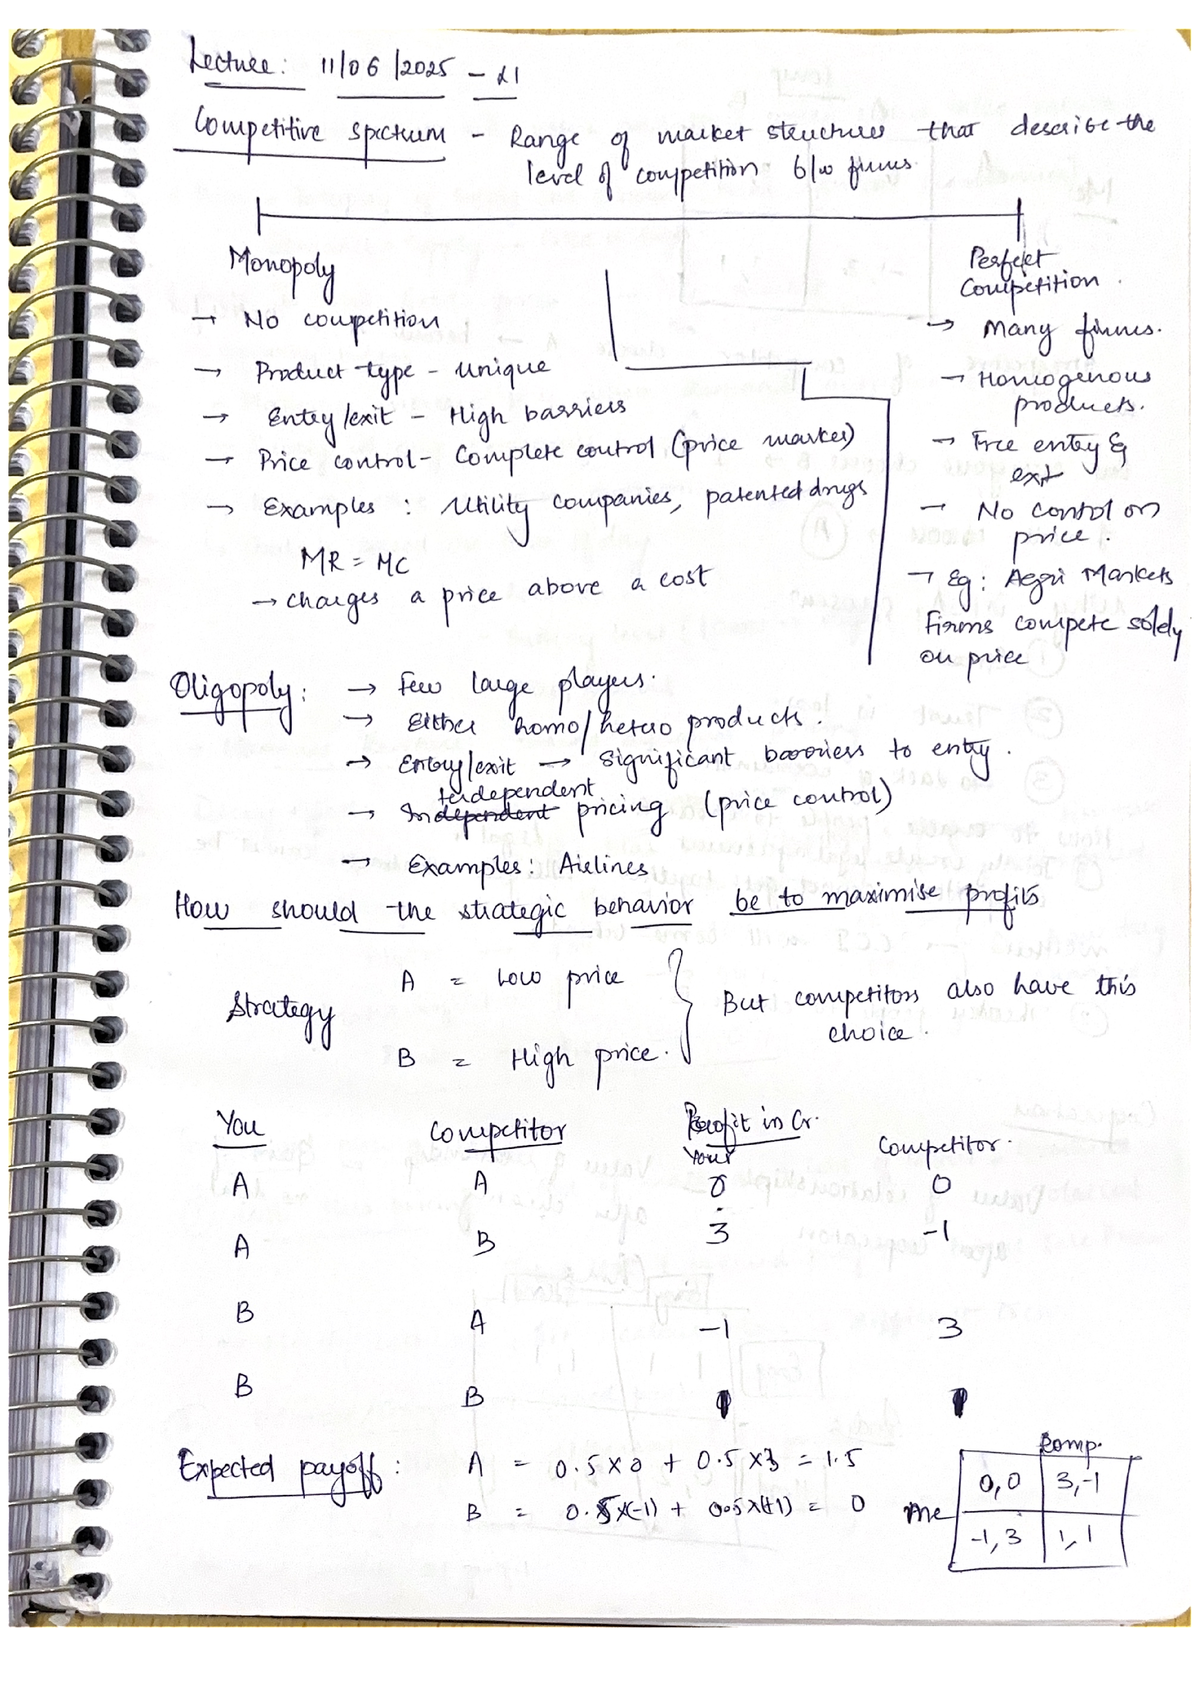 Lecture: 11/06/2025 - L1
Competitive spectrum - Range of market structures that describe the
level of competition b/w firms.
Monopoly
→ No competition
→ Product type - unique
→ Entry/exit - High barriers
→ Price control - Complete control (price market)
→ Examples: Utility companies, patented drugs
MR = MC
→ charges a price above a cost
Perfect
Competition.
→ Many firms.
→ Homogenous
products.
→ Free entry &
exit
→ No control on
price.
→ Eg: Agri Markets
Firms compete solely
on price
Oligopoly: → Few large players.
→ Either homo/hetero products.
→ Entry/exit → significant barriers to entry.
terdependent
→ Independent pricing (price control)
→ Examples: Airlines
How should the strategic behavior be to maximise profits
Strategy
A = Low price
B = High price.
But competitors also have this
choice.
You Competitor Profit in Cr.
Your Competitor.
A A 0 0
A B 3 -1
B A -1 3
B B 1 1
Expected payoff: A = 0.5 x 0 + 0.5 x 3 = 1.5
B = 0.5 x (-1) + 0.5 x (+1) = 0
Comp.
Me
0,0 3,-1
-1,3 1,1